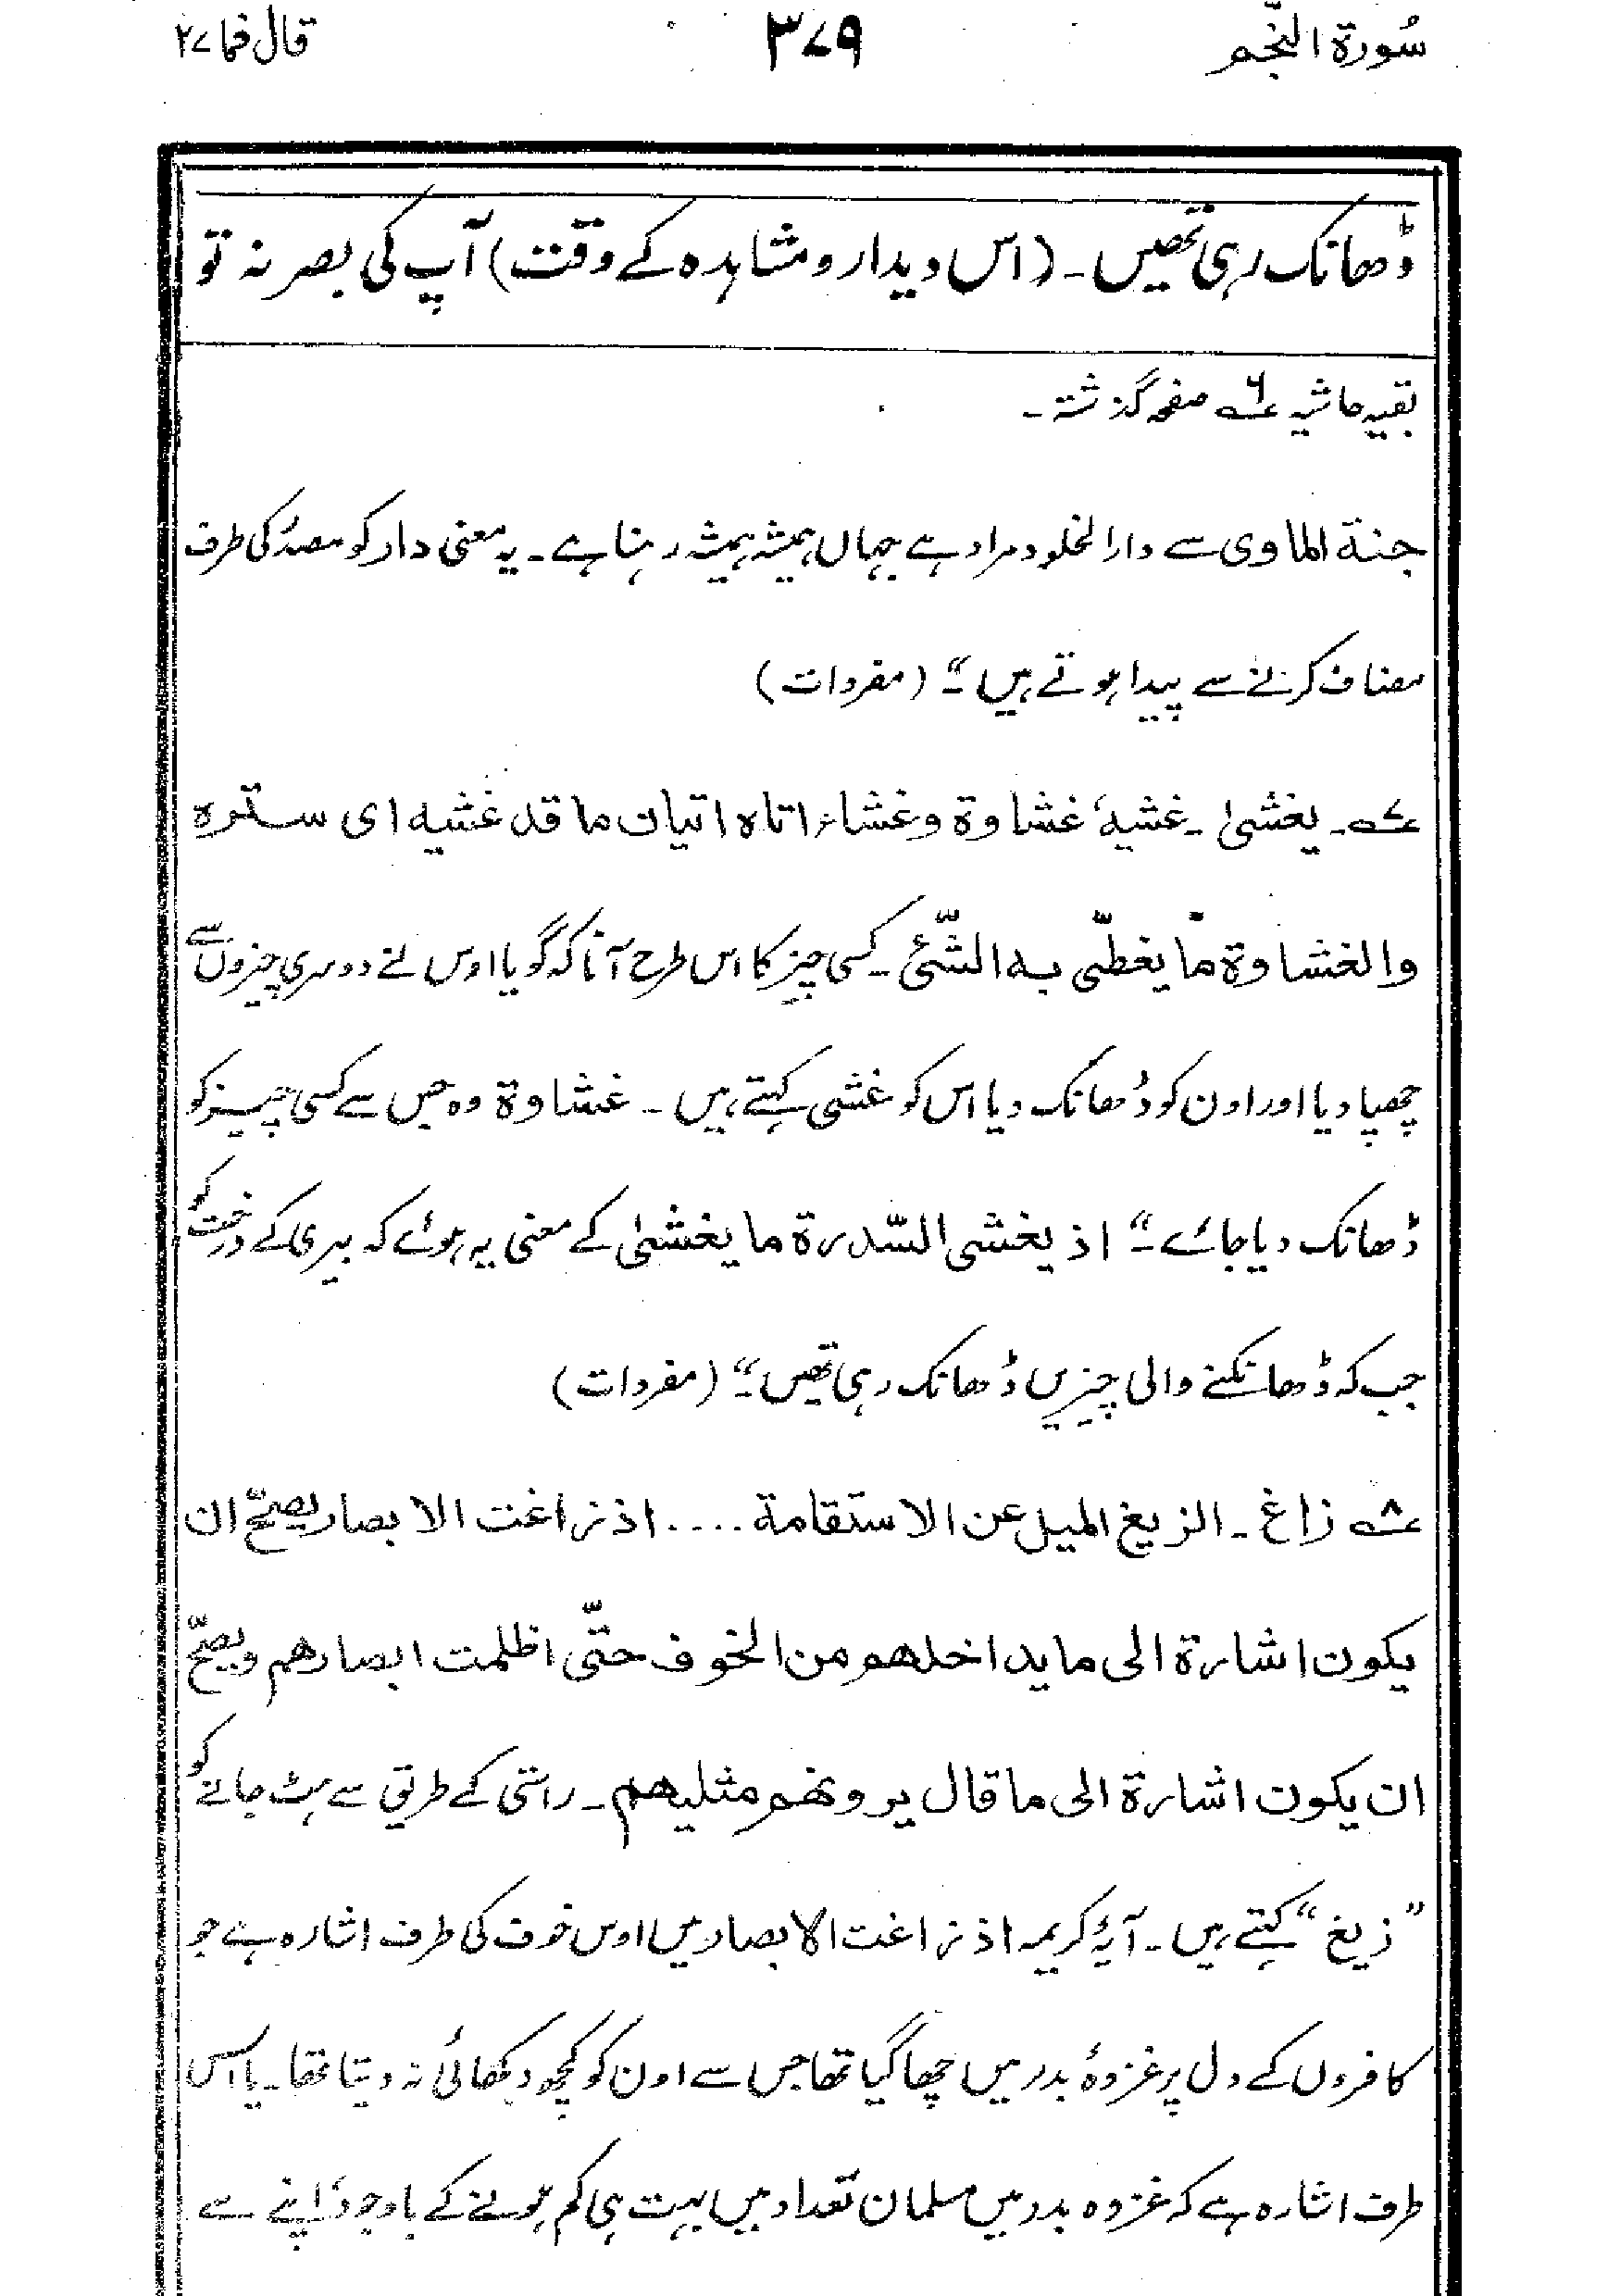 سُورة النّجم
۳۷۹
قال فما ۲۷
ڈھانک رہی تھیں۔ (اس دیدار و مشاہدہ کے وقت) آپ کی بصر نہ تو
بقیہ حاشیہ ۶ صفحہ گذشتہ۔
جنة الماوی سے دارالخلود مراد ہے جہاں ہمیشہ ہمیشہ رہنا ہے۔ یہ معنی دار کو مصدر کی طرف
مضاف کرنے سے پیدا ہوتے ہیں“۔ (مفردات)
۷۔ یغشیٰ۔ غشیہٗ غشاوة وغشاء اتاہ اتیان ما قد غشیه ای سترہ
والغشاوة ما یغطّی به الشّئ۔ کسی چیز کا اس طرح آنا کہ گویا اوس نے دوسری چیزوں سے
چھپا دیا اور اون کو ڈھانک دیا اس کو غشی کہتے ہیں۔ غشاوة وہ جس سے کسی چیز کو
ڈھانک دیا جائے“۔ اذ یغشی السّدرة ما یغشیٰ کے معنی یہ ہوئے کہ بیری کے درخت کو
جب کہ ڈھانکنے والی چیزیں ڈھانک رہی تھیں“۔ (مفردات)
۸ زاغ۔ الزیغ المیل عن الاستقامة .... اذ زاغت الابصار یصحّ ان
یکون اشارة الی ما یداخلهم من الخوف حتّی اظلمت ابصارهم ویصحّ
ان یکون اشارة الی ما قال یرونهم مثلیهم۔ راستی کے طریق سے ہٹ جانے کو
”زیغ“ کہتے ہیں۔ آیۂ کریمہ اذ زاغت الابصار میں اوس خوف کی طرف اشارہ ہے جو
کافروں کے دل پر غزوۂ بدر میں چھا گیا تھا جس سے اون کو کچھ دکھائی نہ دیتا تھا۔ یا اس
طرف اشارہ ہے کہ غزوہ بدر میں مسلمان تعداد میں بہت ہی کم ہونے کے باوجود اپنے سے